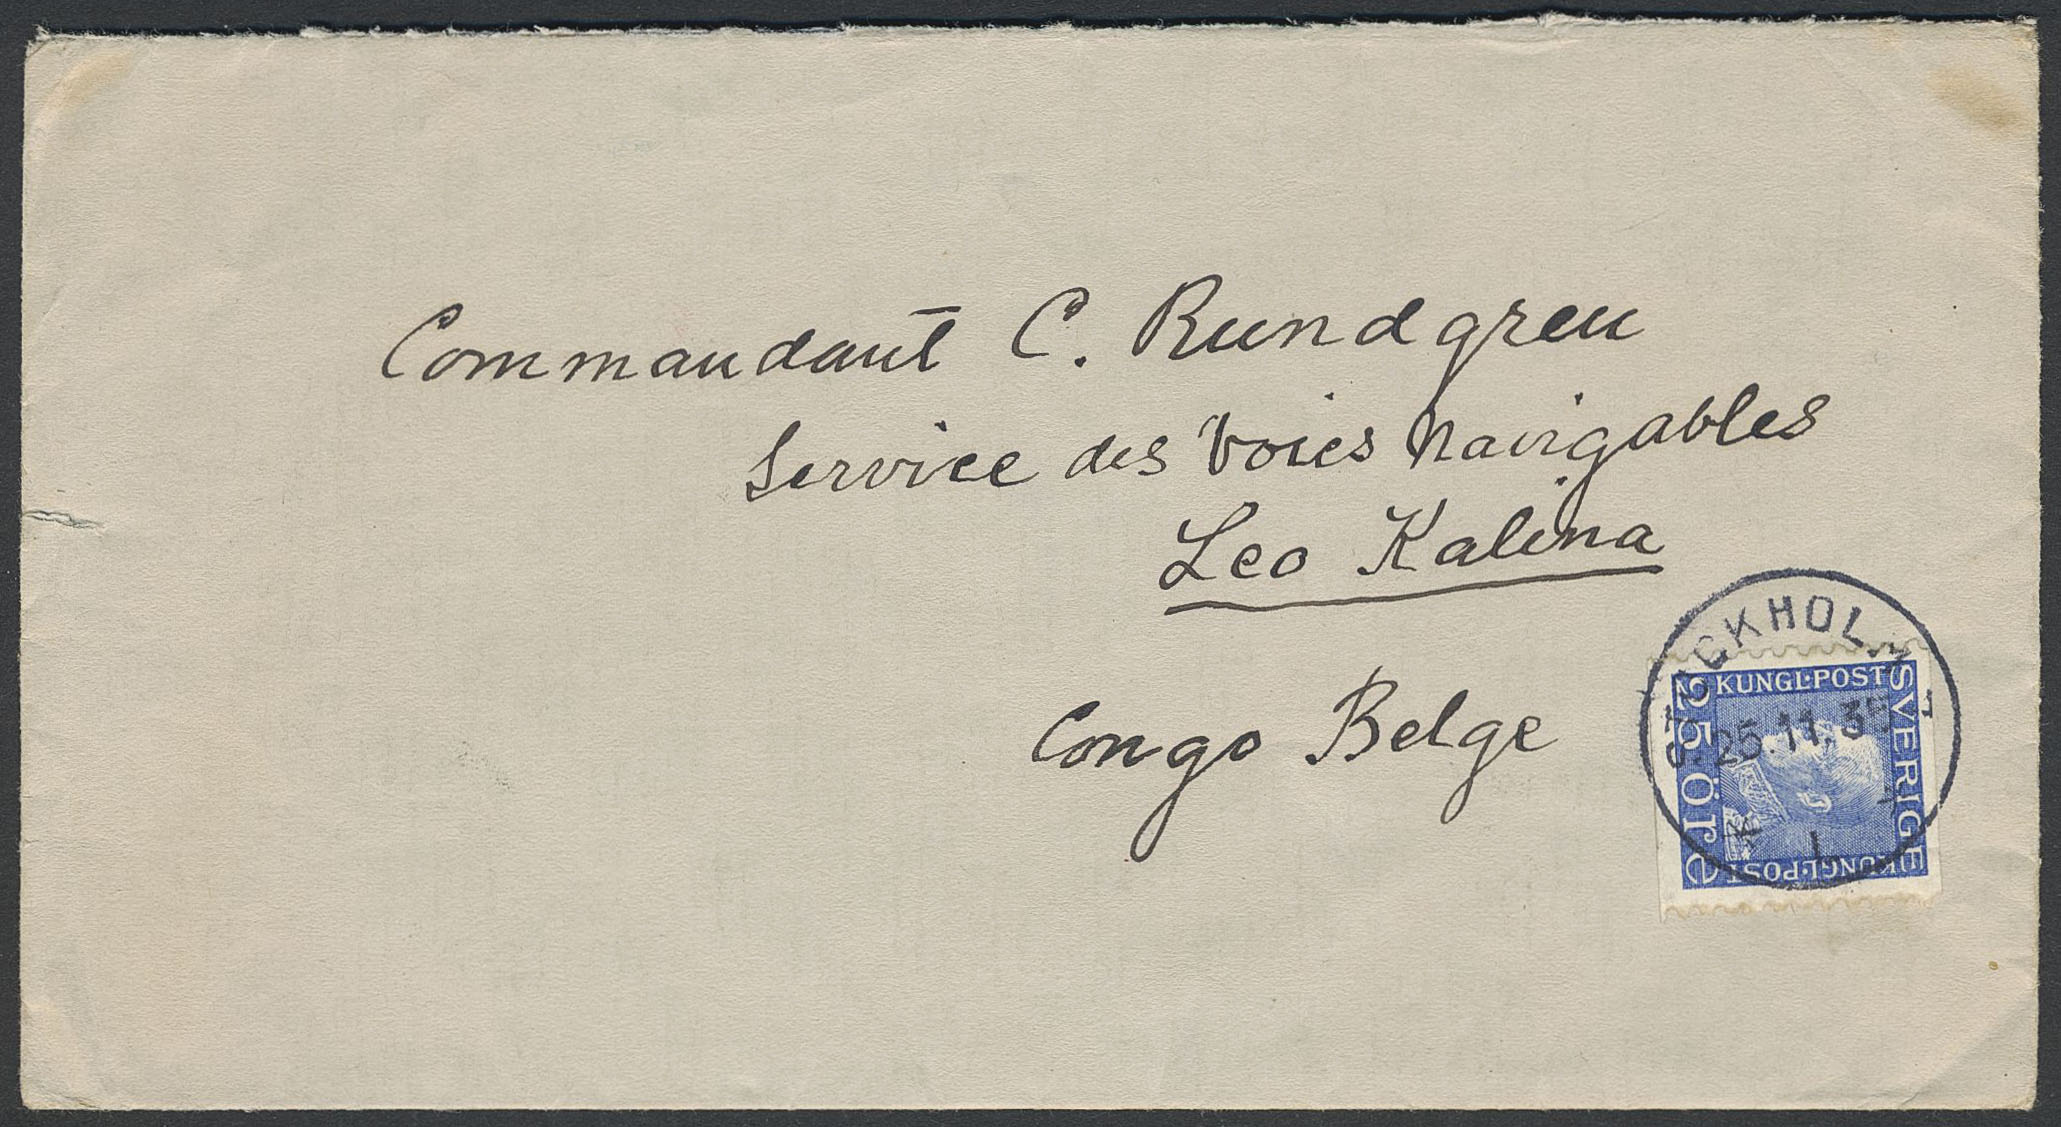 Commandant C. Rundgren
Service des Voies Navigables
Leo Kalina
Congo Belge
STOCKHOLM 1
25.11.35
KUNGL·POST
SVERIGE
25 öre
KUNGL·POST